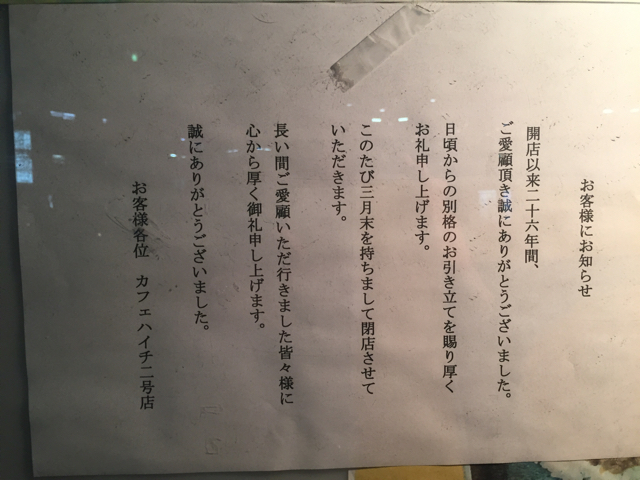 お客様にお知らせ
開店以来二十六年間、
ご愛顧頂き誠にありがとうございました。
日頃からの別格のお引き立てを賜り厚く
お礼申し上げます。
このたび三月末を持ちまして閉店させて
いただきます。
長い間ご愛顧いただ行きました皆々様に
心から厚く御礼申し上げます。
誠にありがとうございました。
お客様各位 カフェハイチ二号店